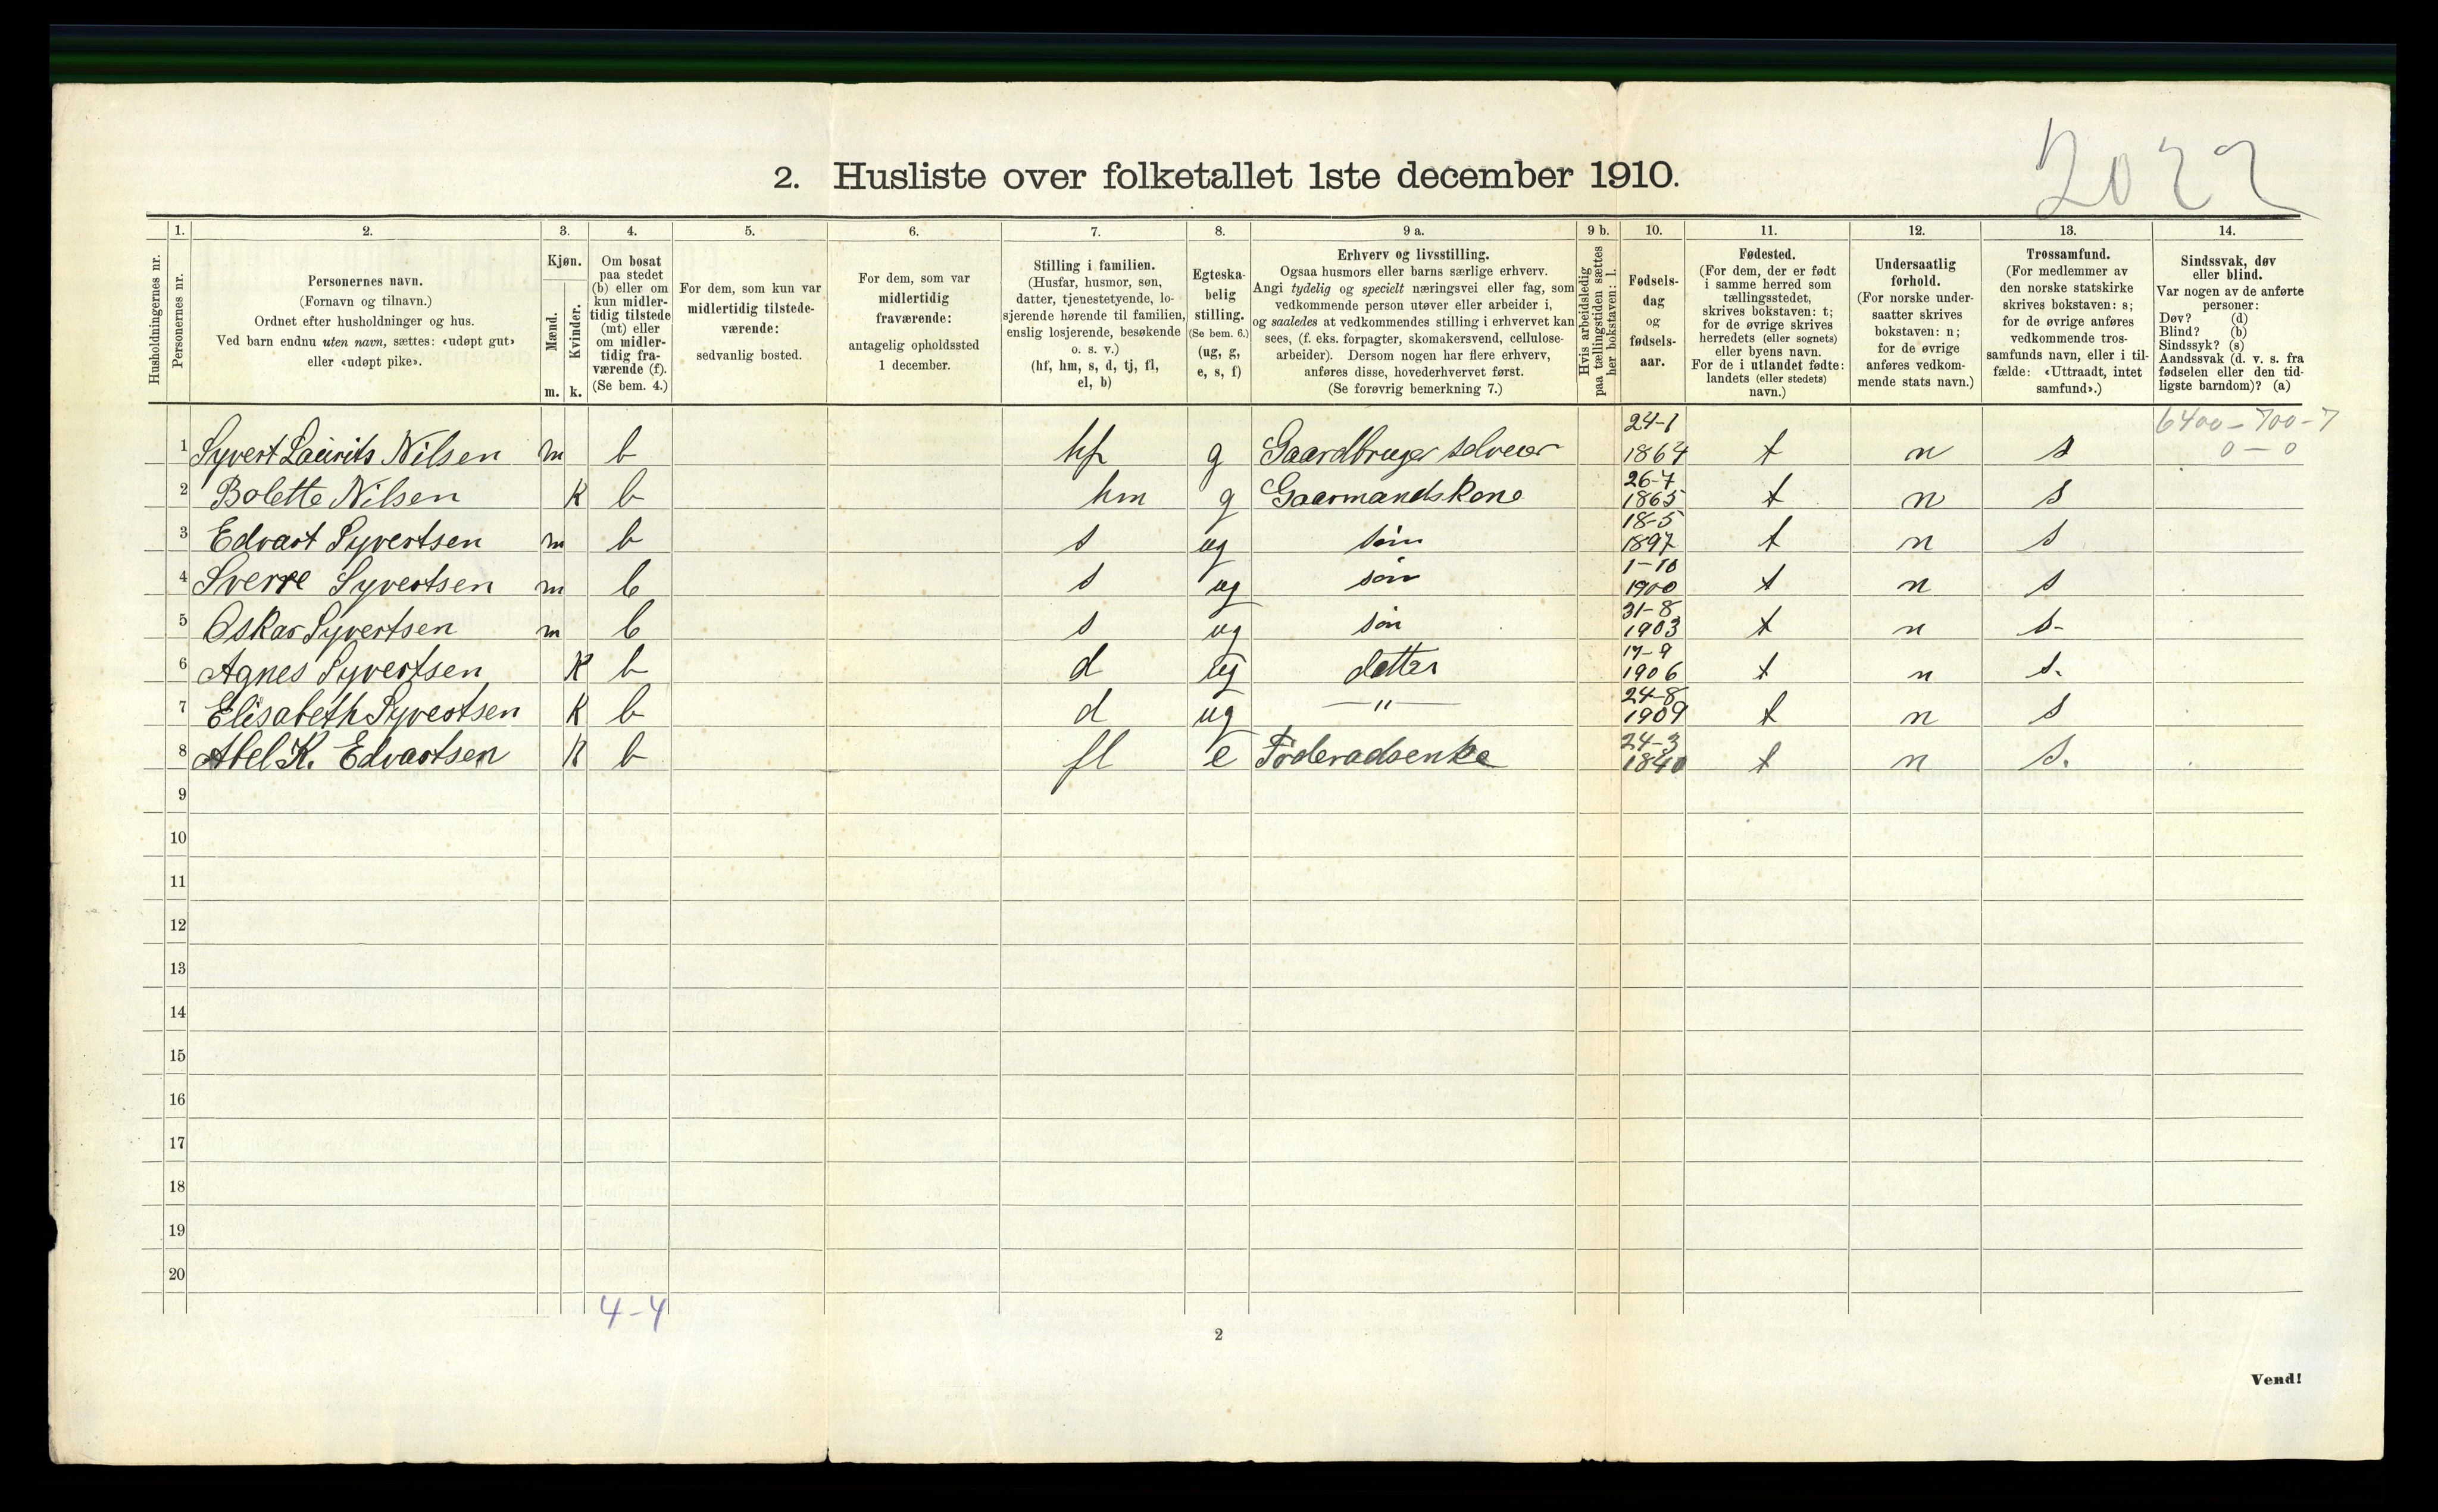 2022
2. Husliste over folketallet 1ste december 1910.
1. 2. 3. 4. 5. 6. 7. 8. 9 a. 9 b. 10. 11. 12. 13. 14.
Husholdningernes nr.
Personernes nr.
Personernes navn.
(Fornavn og tilnavn.)
Ordnet efter husholdninger og hus.
Ved barn endnu uten navn, sættes: «udøpt gut»
eller «udøpt pike».
Kjøn.
Mænd.
Kvinder.
m. k.
Om bosat
paa stedet
(b) eller om
kun midler-
tidig tilstede
(mt) eller
om midler-
tidig fra-
værende (f).
(Se bem. 4.)
For dem, som kun var
midlertidig tilstede-
værende:
sedvanlig bosted.
For dem, som var
midlertidig
fraværende:
antagelig opholdssted
1 december.
Stilling i familien.
(Husfar, husmor, søn,
datter, tjenestetyende, lo-
sjerende hørende til familien,
enslig losjerende, besøkende
o. s. v.)
(hf, hm, s, d, tj, fl,
el, b)
Egteska-
belig
stilling.
(Se bem. 6.)
(ug, g,
e, s, f)
Erhverv og livsstilling.
Ogsaa husmors eller barns særlige erhverv.
Angi tydelig og specielt næringsvei eller fag, som
vedkommende person utøver eller arbeider i,
og saaledes at vedkommendes stilling i erhvervet kan
sees, (f. eks. forpagter, skomakersvend, cellulose-
arbeider). Dersom nogen har flere erhverv,
anføres disse, hovederhvervet først.
(Se forøvrig bemerkning 7.)
Hvis arbeidsledig
paa tællingstiden sættes
her bokstaven: l.
Fødsels-
dag
og
fødsels-
aar.
Fødested.
(For dem, der er født
i samme herred som
tællingsstedet,
skrives bokstaven: t;
for de øvrige skrives
herredets (eller sognets)
eller byens navn.
For de i utlandet fødte:
landets (eller stedets)
navn.)
Undersaatlig
forhold.
(For norske under-
saatter skrives
bokstaven: n;
for de øvrige
anføres vedkom-
mende stats navn.)
Trossamfund.
(For medlemmer av
den norske statskirke
skrives bokstaven: s;
for de øvrige anføres
vedkommende tros-
samfunds navn, eller i til-
fælde: «Uttraadt, intet
samfund».)
Sindssvak, døv
eller blind.
Var nogen av de anførte
personer:
Døv? (d)
Blind? (b)
Sindssyk? (s)
Aandssvak (d. v. s. fra
fødselen eller den tid-
ligste barndom)? (a)
6400 - 700 - 7
0 - 0
1 Syvert Laurits Nilsen m b hf g Gaardbruger selveier 24-1 1864 t n s
2 Bolette Nilsen K b hm g Gaarmandskone 26-7 1865 t n s
3 Edvart Syvertsen m b s ug søn 18-5 1897 t n s
4 Sverre Syvertsen m b s ug søn 1-10 1900 t n s
5 Oskar Syvertsen m b s ug søn 31-8 1903 t n s.
6 Agnes Syvertsen K b d ug datter 17-9 1906 t n s.
7 Elisabeth Syvertsen K b d ug — " — 24-8 1909 t n s
8 Abel K. Edvartsen K b fl e Føderadsenke 24-3 1840 t n s.
9
10
11
12
13
14
15
16
17
18
19
20
4-4
2
Vend!